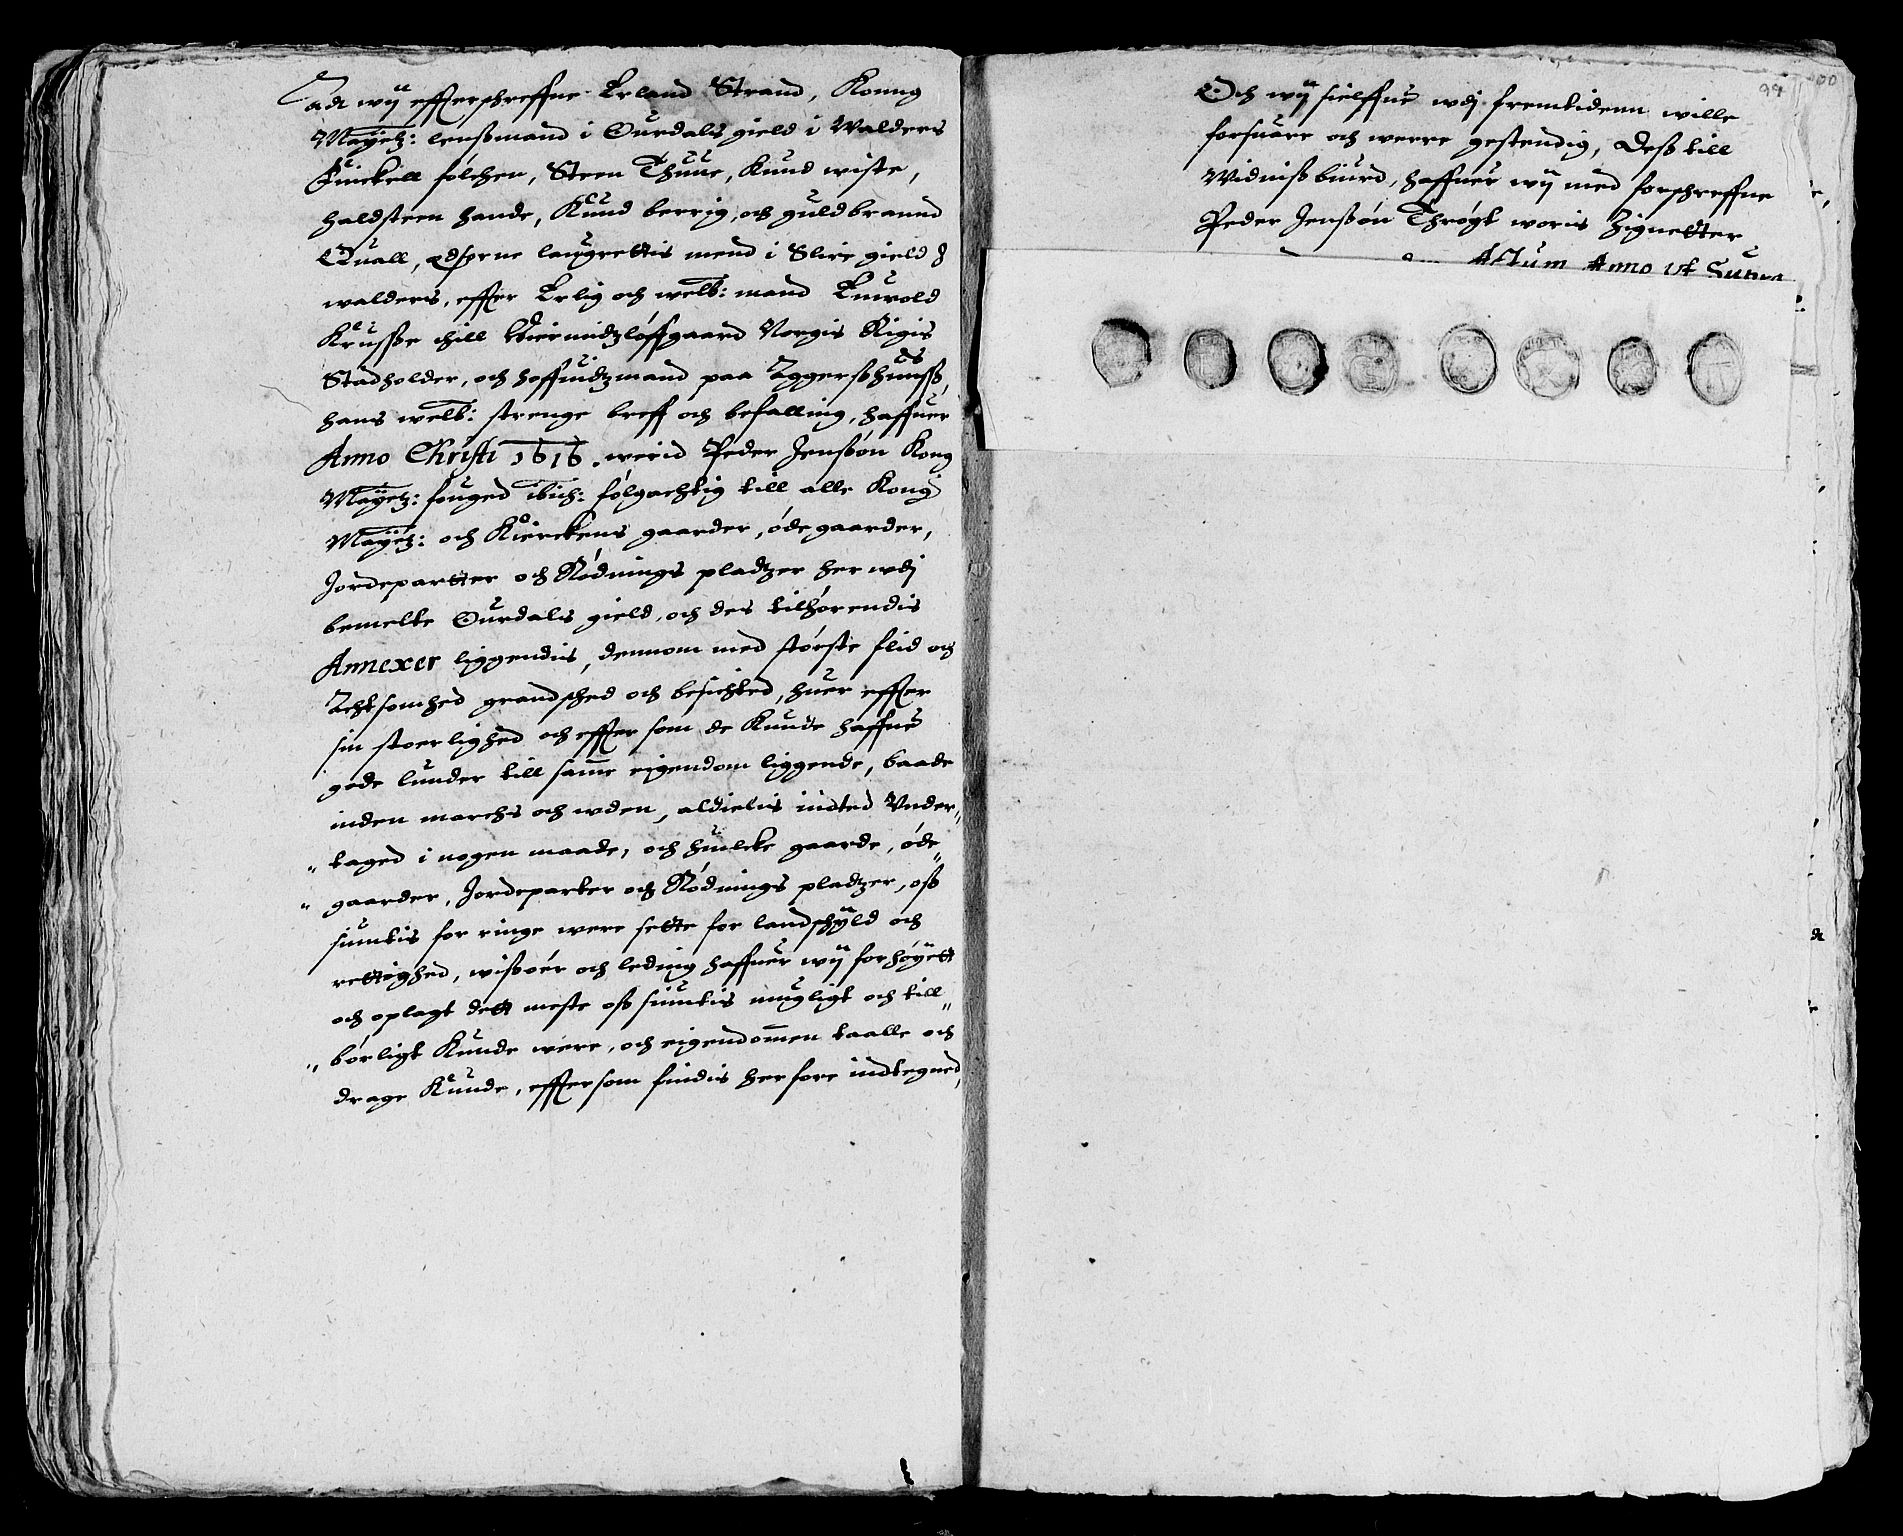 Adt wij effterschreffne Erland Strand, Konng
Mayetz: lenßmand i Ourdals gield i Walders
Finckell følchen, Steen Thuue, Knud wiste,
haldsteen hande, Knud berrig, och guldbrannd
Quall, edsorne laugrettis mend i Slire gield i
walders, effter Erlig och welb: mand Enuold
Krusße thill Hiermidtzløffgaard Norgis Rigis
Stadholder, och hoffuidtzmand paa Aggerßhuusß,
hans welb: strenge breff och befalling, haffuer
Anno Christi 1616. werid Peder Jenßøn Kong
Mayetz: fouged ibid: følgachtig till alle Kong
Mayetz: och Kierckens gaarder, ødegaarder,
Jordepartter och Rødnings pladtzer her wdj
bemelte Ourdals gield, och des tilhørendis
Annexer liggendis, dennom med største flid och
Achtsomhed grandsched och besichted, huer effter
sin stoerlighed och effter som de Kunde haffue
gode lunder till samme eigendom liggende, baade
inden marchs och wden, aldielis indted Vnder-
taged i nogen maade, och huilcke gaarde, øde
gaarder, Jordeparter och Rødnings pladtzer, oß
siuntis for ringe were sette for landschyld och
rettighed, wißøer och leding haffuer wij forhøyett
och oplagt dett meste oß siuntis mugligt och till
børligt Kunde were, och eigendommen taalle och
drage Kunde, efftersom findis her fore indtegned,
99
00
Och wij sielffue wdj fremtidenn wille
forsuare och werre gestendig, Deß till
Widnißbiurd, haffuer wij med forschreffne
Peder Jenßøn Thrøgt woris Zignetter
Actum Anno ut Supra